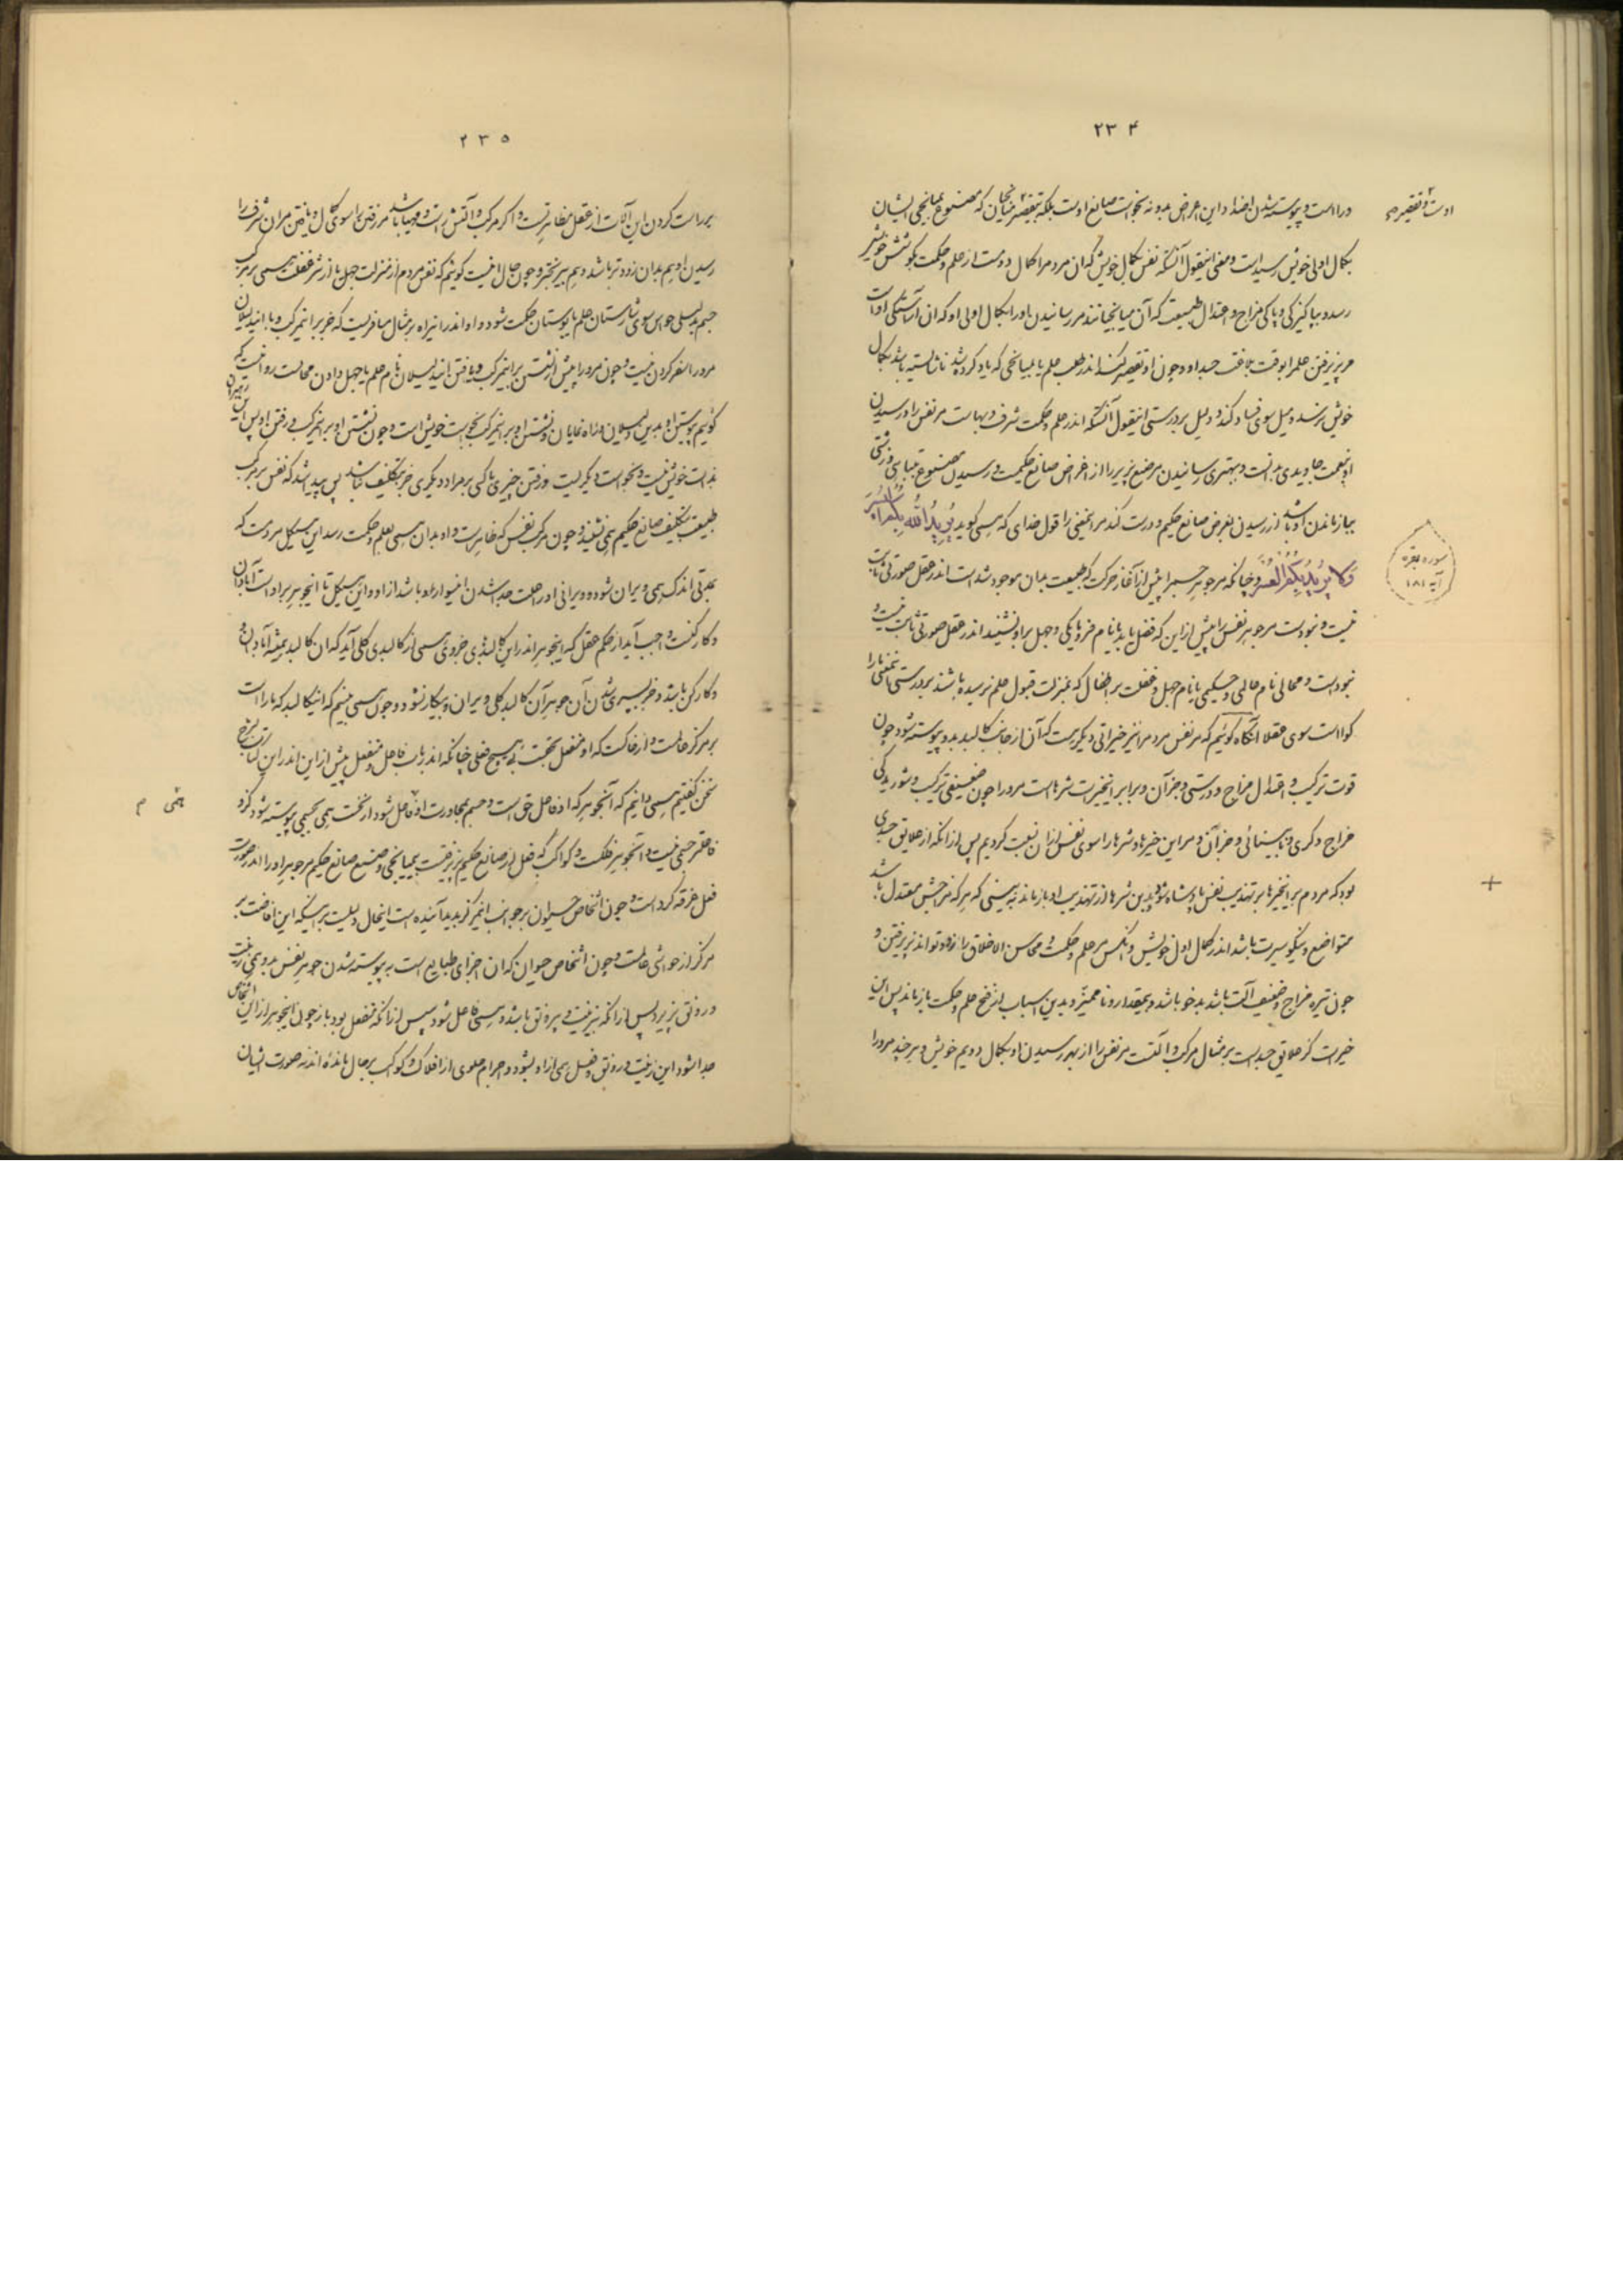 ۲۳۴
در است و پیوسته شدن اعضا و این اعراض بدو نه بخواست صانع اوست بلکه بتقصیر میانجیان که مصنوع بمیانجی ایشان
اوست و تقصیر
بکمال اولی خویش رسیده است و معنی این قول آنست که نفس بکمال خویش که آن مر مردم را کمال دوم است از علم و حکمت بکوشش خویش
رسد و بپاکیزگی و پاکی مزاج و اعتدال طبیعت که آن میانجیانند مر رسانیدن او را بکمال اولی او که آن آراستگی اوست
مر پذیرفتن علم را بوقت مفارقت جسد او و چون او تقصیر کند اندر طلب علم یا میانجی که یاد کرده شد ناشایسته باشد بکمال
خویش نرسد و میل سوی فساد کند و دلیل بر درستی این قول آنست که اندر علم و حکمت شرف و بهاست مر نفس را و رسیدن
او بنعمت جاویدی بدانست و بهتری رسانیدن مر صنع پذیر را از اغراض صانع حکیمست و رسیدن مصنوع بتباهی و زشتی
بباز ماندن او باشد از رسیدن بغرض صانع حکیم و درست کند مر این معنی را قول خدای که همی گوید یُریدُ اللّهُ بِکُمُ الْیُسْرَ
وَلا یُریدُ بِکُمُ الْعُسْرَ و چنانکه مر جوهر جسم را پیش از آغاز حرکت که طبیعت بدان موجود شده است اندر عقل صورتی ثابت
سوره بقره
آیه ۱۸۱
نیست و نبودست مر جوهر نفس را پیش از این که فضل یابد یا نام فرومایگی و جهل بر او نشیند اندر عقل صورتی ثابت نیست و
نبودست و محالی نام عالمی و حکیمی یا نام جهل و غفلت بر اطفال که بمنزلت قبول علم نرسیده باشند بر درستی این معنی ما را
گواست سوی عقلا آنگاه گوئیم که مر نفس مردم را نیز خیراتی دیگرست که آن از جانب کالبد بدو پیوسته شود چون
قوت ترکیب و اعتدال مزاج و درستی و جز آن و برابر این خیرات شرهاست مر او را چون ضعیفی ترکیب و شوریدگی
مزاج و کری و نابینائی و جز آن و مر این خیرها و شرها را سوی نفس از آن نسبت کردیم پس از آنکه از علایق جسدی
بود که مردم بر این خیرها بر تهذیب نفس پادشاه شود و بدین شرها از تهذیب او باز ماند نه بینی که هر که مزاجش معتدل باشد
متواضع و نیکو سیرت باشد اندر کمال اول خویش و آنکس مر علم و حکمت و محاسن الاخلاق را زودتر تواند پذیرفتن و
چون تیره مزاج و ضعیف آلت باشد بدخو باشد و بی‌مقدار و ناممیز و بدین اسباب از فتح علم و حکمت باز ماند پس این
خیرات کز علایق جسد است بر مثال مرکب و آلتست مر نفس را از بهر رسیدن او بکمال دویم خویش و هر چند مر او را
۲۳۵
بر راست کردن این آلات از عقل مظاهر نیست و اگر مرکب و آلتش راست و مهیا باشد مر رفتن را سوی کمال و یافتن مر آن شرف را
رسیدن او بدان زودتر باشد و چون حال اینست گوئیم که نفس مردم از منزلت جهل یا از شر غفلت همی بر مرکب
جسم بدلیلی حواس سوی شارستان علم یا بوستان حکمت شود و او اندر این راه بر مثال مسافریست که جز بر این مرکب و با این دلیلان
مر او را سفر کردن نیست و چون مر او را پیش از نشستن بر این مرکب و یافتن این دلیلان نام علم یا جهل دادن محالست روا نیست که
گوئیم پیوستن او بدین دلیلان و راه نمایان و نشستن او بر این مرکب بخواست خویش است و چون نشستن او بر این مرکب و رفتن او پس این رهبران
بذات خویش نیست و بخواست دیگریست و رفتن چیزی یا کسی بر مراد دیگری جز بتکلیف نباشد پس پیدا شد که نفس بر مرکب
طبیعت بتکلیف صانع حکیم همی نشیند و چون مرکب نفس که ظاهرست و او بدان همی بعلم و حکمت رسد این هیکل مردمست که
بمدتی اندک همی ویران شود و ویرانی او را علت جدا شدن این سوار او باشد از او و این هیکل تا این جوهر بر اوست آبادان
و کار کنست واجب آید از حکم عقل که این جوهر اندر این کالبدی جزوی همی از کالبدی کلی آید که آن کالبد همیشه آبادان و
کارکن باشد و جز بسپری شدن آن جوهر آن کالبد کلی ویران و بیکار نشود و چون همی بینم که این کالبد که ما راست
بر مرکز عالمست و از خاکست که او منفعل بحقیقت است بی هیچ فعلی چنانکه اندر باب فاعل و منفعل پیش از این اندر این کتاب شرح
سخن گفتیم همی دانیم که آن جوهر که او فاعل حق است و جسم بمجاورت او فاعل شود از نخست همی بجسمی پیوسته شود کزو
همی م
فاعلتر جسمی نیست و آن جوهر فلکست و کواکب که فعل از صانع حکیم پذیرفتست بیمیانجی و صنع صانع حکیم مر جوهر او را اندر صورت
فعل غرقه کرده است و چون اشخاص حیوان بر جوانب این مرکز پدید آینده است این حال دلیلست بر آنکه این افاضت بر
مرکز از حواشی عالمست و چون اشخاص حیوان که آن اجزای طبایع است به پیوسته شدن جوهر نفس بدو همی زینت
و رونق پذیرد پس از آنکه بی زینت و بی رونق باشد و همی فاعل شود سپس از آنکه منفعل بود و باز چون این جوهر از این اشخاص
جدا شود این زینت و رونق و فعل همی از او بشود و اجرام علوی از افلاک و کواکب بر حال مانده اند نه صورت ایشان